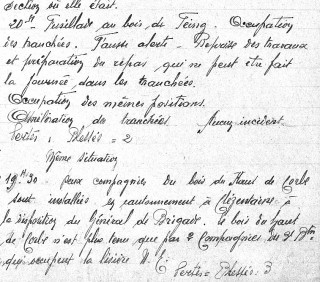 section où elle était.
20h Fusillade au bois de Feing. Occupation
des tranchées. Fausse alerte - Reprise des travaux
et préparation du repas qui ne peut être fait
la journée dans les tranchées.
Occupation des mêmes positions.
Amélioration de tranchées. Aucun incident
Pertes: Blessés = 2
Même situation
19h30 Deux compagnies du bois du Haut de Corbe
sont installées en cantonnement à Clézentaine à
la disposition du Général de Brigade. Le bois du Haut
de Corbe n'est plus tenu que par 2 Compagnies du 2e Btn
qui occupent la lisière N.E.
Pertes = Blessés: 3